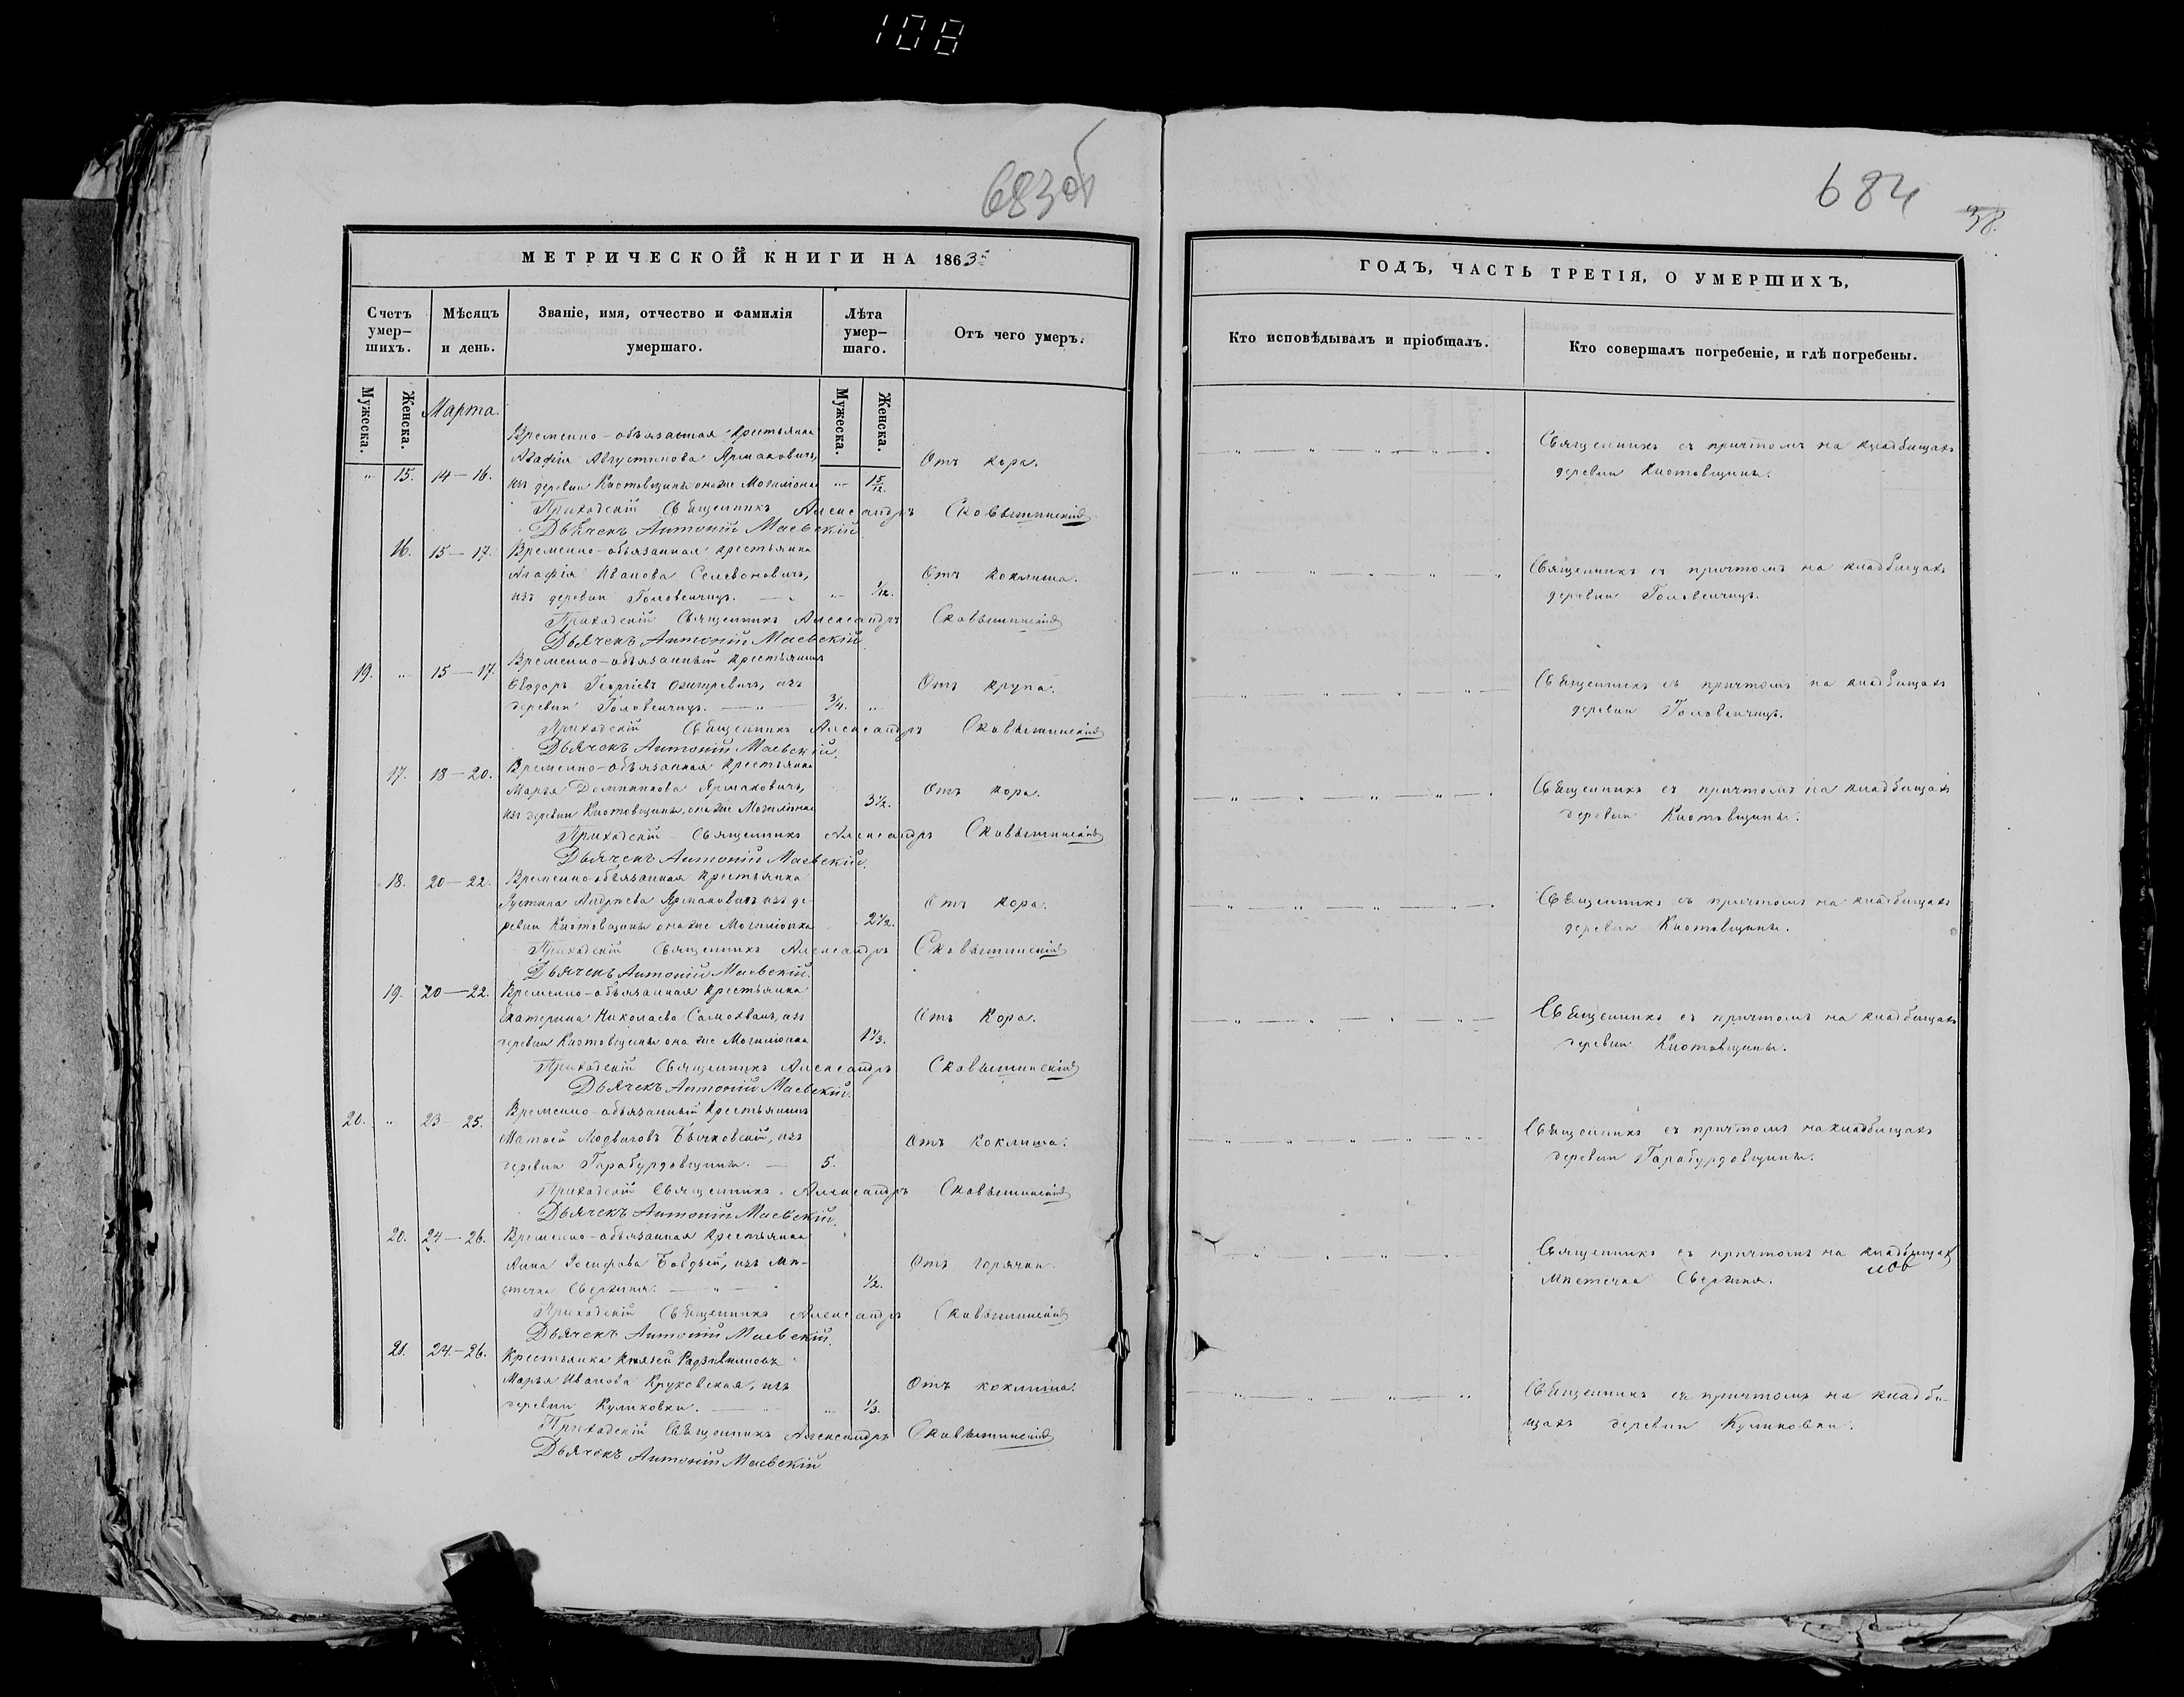 108
683об
684
38.
МЕТРИЧЕСКОЙ КНИГИ НА 1863й
ГОДЪ, ЧАСТЬ ТРЕТІЯ, О УМЕРШИХЪ,
Счетъ умер-шихъ.
Мѣсяцъ и день.
Званіе, имя, отчество и фамилія умершаго.
Лѣта умер-шаго.
Отъ чего умеръ.
Кто исповѣдывалъ и пріобщалъ.
Кто совершалъ погребеніе, и гдѣ погребены.
Мужеска.
Женска.
Марта.
Мужеска.
Женска.
Временно-обязанная крестьянка
Агафія Августинова Ярмаковичъ,
" 15. 14-16. изъ деревни Кіотовщины она же " 15/12. Отъ кора.
Священникъ съ причтомъ на кладбищахъ
деревни Кіотовщины.
Приходскій Священникъ Александръ
Дьячекъ Антоній Маевскій
16. 15-17. Временно-обязанная крестьянка
Агафія Иванова Селевоновичъ, Отъ коклюша.
изъ деревни Головенчицъ. " 1/12.
Священникъ съ причтомъ на кладбищахъ
деревни Головенчицъ.
Приходскій Священникъ Александръ
Дьячекъ Антоній Маевскій.
19. " 15-17. Временно-обязанный крестьянинъ
Ѳеодоръ Георгіевъ изъ Отъ крупа.
деревни Головенчицъ. 3/4. "
Священникъ съ причтомъ на кладбищахъ
деревни Головенчицъ.
Приходскій Священникъ Александръ
Дьячекъ Антоній Маевскій.
17. 18-20. Временно-обязанная крестьянка
Марья Доминикова Ярмаковичъ, Отъ кора.
изъ деревни Кіотовщины, она же 3 1/2.
Священникъ съ причтомъ на кладбищахъ
деревни Кіотовщины.
Приходскій Священникъ Александръ
Дьячекъ Антоній Маевскій.
18. 20-22. Временно-обязанная крестьянка
Андреева Ярмаковичъ изъ де- Отъ кора.
ревни Кіотовщины она же 2 1/2.
Священникъ съ причтомъ на кладбищахъ
деревни Кіотовщины.
Приходскій Священникъ Александръ
Дьячекъ Антоній Маевскій.
19. 20-22. Временно-обязанная крестьянка
Екатерина Николаева Самохвалъ, изъ Отъ Кора.
деревни Кіотовщины она же 1 1/3.
Священникъ съ причтомъ на кладбищахъ
деревни Кіотовщины.
Приходскій Священникъ Александръ
Дьячекъ Антоній Маевскій.
20. " 23-25. Временно-обязанный крестьянинъ
Матѳей Людвиговъ Бычковскій, изъ Отъ коклюша.
деревни Гарабурдовщины. 5.
Священникъ съ причтомъ на кладбищахъ
деревни Гарабурдовщины.
Приходскій Священникъ Александръ
Дьячекъ Антоній Маевскій.
20. 24-26. Временно-обязанная крестьянка
Анна Іосифова изъ мѣ- Отъ горячки.
стечка Свержня. 1/2.
Священникъ съ причтомъ на кладбищахъ
мѣстечка Свержня.
Приходскій Священникъ Александръ
Дьячекъ Антоній Маевскій.
21. 24-26. Крестьянка Князей Радзивиловъ
Марья Иванова Круковская, изъ Отъ коклюша.
деревни Куликовки. " 1/3.
Священникъ съ причтомъ на кладби-
щахъ деревни Куликовки.
Приходскій Священникъ Александръ
Дьячекъ Антоній Маевскій